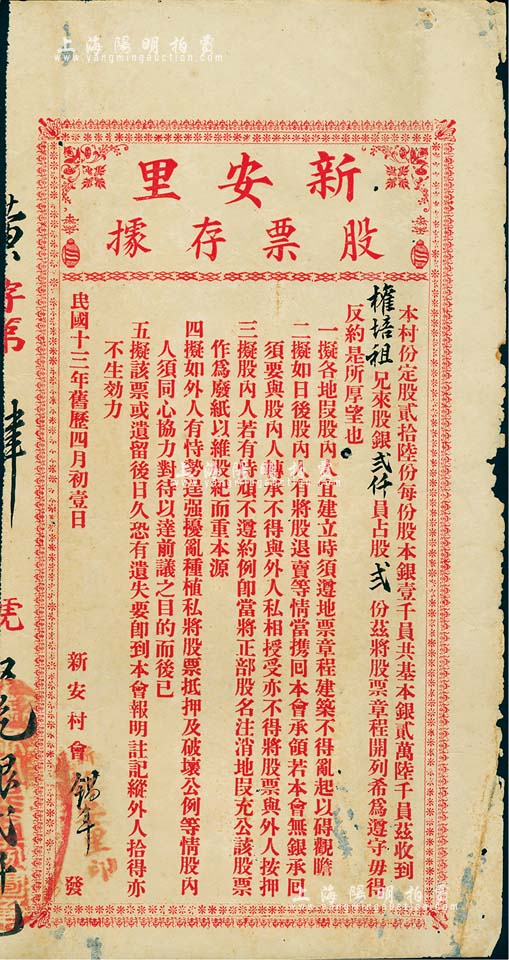 上海陽明拍賣
www.yangmingauction.com
新安里
股票存據
本村份定股貳拾陸份每份股本銀壹千員共基本銀貳萬陸千員茲收到
權培祖兄來股銀貳仟員占股貳份茲將股票章程開列希為遵守毋得
反約是所厚望也
一擬各地段股內人宜建立時須遵地票章程建築不得亂起以碍觀瞻
二擬如日後股內人有將股退賣等情當携回本會承領若本會無銀承回
須要與股內人承不得與外人私相授受亦不得將股票與外人按押
三擬股內人若有頑不遵約例即當將正部股名注消地段充公該股票
作為廢紙以維股紀而重本源
四擬如外人有恃勢達强擾亂種植私將股票抵押及破壞公例等情股內
人須同心協力對待以達前議之目的而後已
五擬該票或遺留後日久恐有遺失要即到本會報明註記縱外人拾得亦
不生効力
民國十三年舊歷四月初壹日
新安村會 發
黃字第肆號
上海陽明拍賣
www.yangmingauction.com
上海陽明拍賣
www.yangmingauction.com